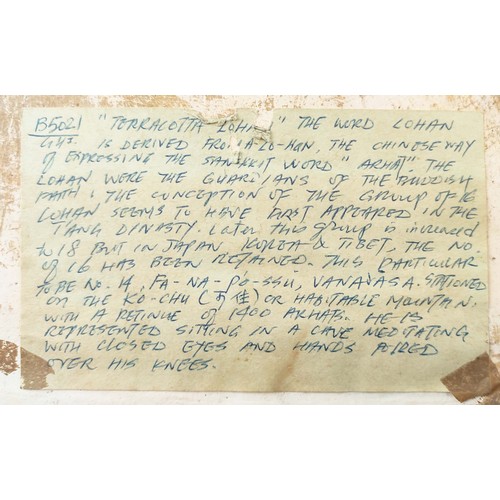 B5021 "TERRACOTTA LOHAN" THE WORD LOHAN
IS DERIVED FROM A-LO-HAN, THE CHINESE WAY
OF EXPRESSING THE SANSKRIT WORD "ARHAT". THE
LOHAN WERE THE GUARDIANS OF THE BUDDISH
FAITH. THE CONCEPTION OF THE GROUP OF 16
LOHAN SEEMS TO HAVE FIRST APPEARED IN THE
TANG DINASTY. Later this group is increased
to 18 BUT IN JAPAN KOREA & TIBET, THE NO.
OF 16 HAS BEEN RETAINED. THIS PARTICULAR
TO BE NO. 14, FA-NA-P'O-SSU, VANAVASA. STATIONED
ON THE KO-CHU (可住) OR HABITABLE MOUNTAIN,
WITH A RETINUE OF 1400 ARHATS. HE IS
REPRESENTED SITTING IN A CAVE MEDITATING
WITH CLOSED EYES AND HANDS
OVER HIS KNEES.